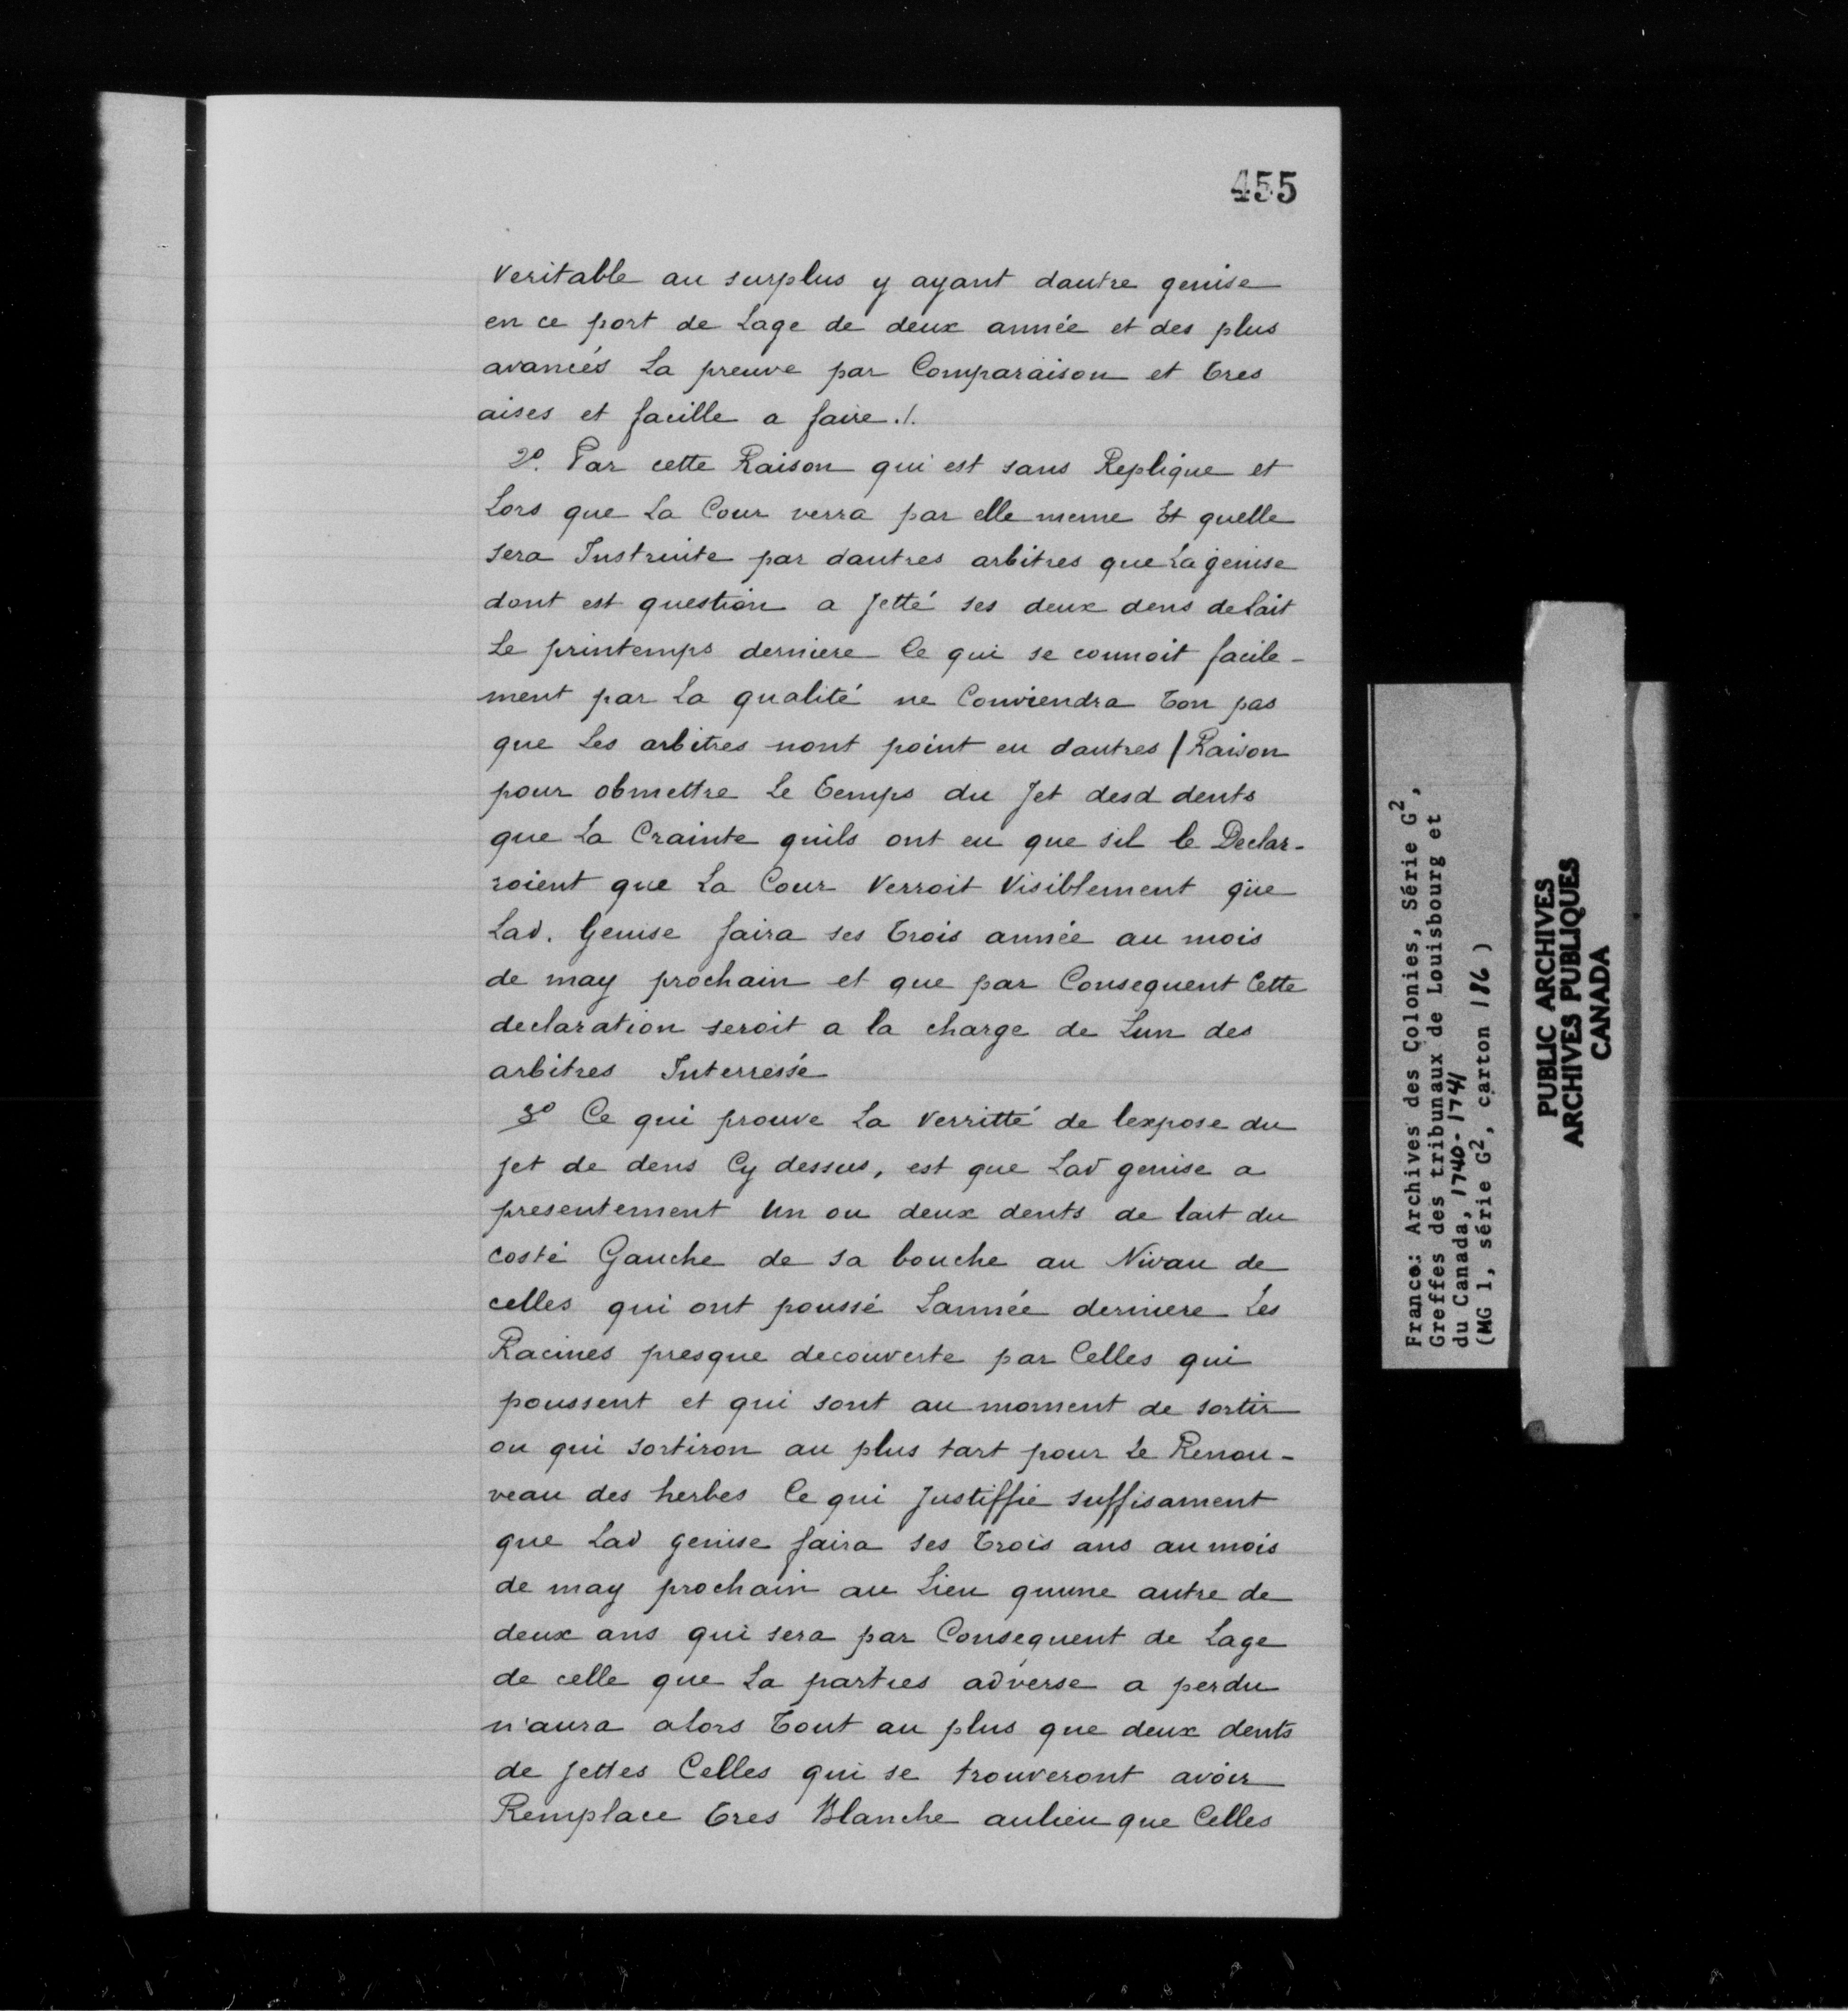 455
veritable au surplus y ayant dautre genise
en ce port de Lage de deux année et des plus
avancés La preuve par Comparaison et tres
aises et facille a faire ./.
2º. Par cette Raison qui est sans Replique et
Lors que La Cour verra par elle meme Et quelle
sera Instruite par dautres arbitres que La genise
dont est question a Jetté ses deux dens de Lait
Le printemps derniere Ce qui se connoit facile-
ment par La qualité ne Conviendra ton pas
que Les arbitres nont point eu dautres / Raison
pour obmettre Le temps du Jet desd dents
que La Crainte quils ont eu que sil le Declar-
roient que La Cour Verroit Visiblement que
Lad. Genise faira ses trois année au mois
de may prochain et que par Consequent Cette
declaration seroit a la charge de Lun des
arbitres Interressé
3º Ce qui prouve La verritté de lexpose du
jet de dens Cy dessus, est que Lad genise a
presentement Un ou deux dents de lait du
costé Gauche de sa bouche au Nivau de
celles qui ont poussé Lannée derniere Les
Racines presque decouverte par Celles qui
poussent et qui sont au moment de sortir
ou qui sortiron au plus tart pour Le Renou-
veau des herbes Ce qui Justiffie suffisament
que Lad genise faira ses trois ans au mois
de may prochain au Lieu quune autre de
deux ans qui sera par Consequent de Lage
de celle que La parties adverse a perdu
n'aura alors tout au plus que deux dents
de jettes Celles qui se trouveront avoir
Remplace tres Blanche aulieu que Celles
France: Archives des Colonies, Série G2,
Greffes des tribunaux de Louisbourg et
du Canada, 1740-1741
(MG 1, série G2, carton 186)
PUBLIC ARCHIVES
ARCHIVES PUBLIQUES
CANADA